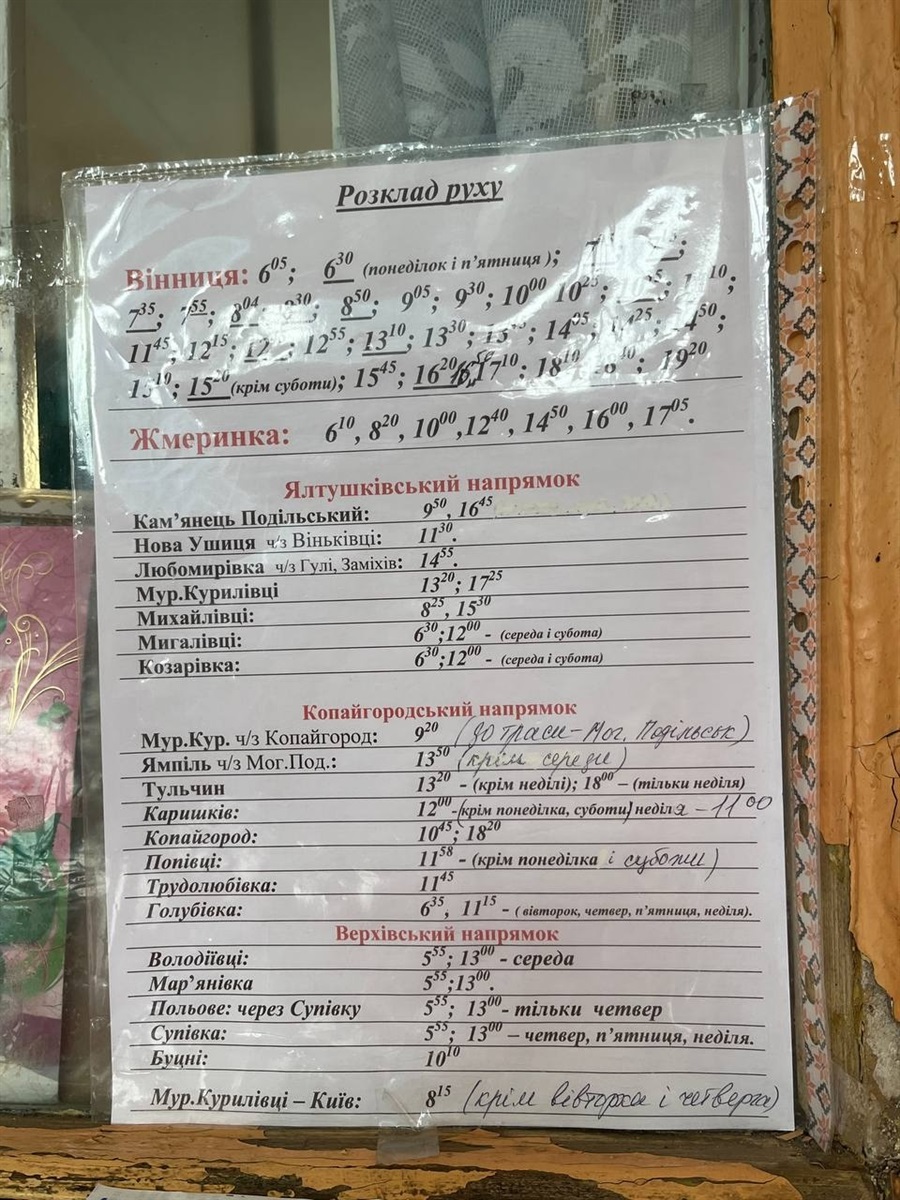 Розклад руху
Вінниця: 6⁰⁵; 6³⁰ (понеділок і п’ятниця);
7³⁵; 7⁵⁵; 8⁰⁴; 8³⁰; 8⁵⁰; 9⁰⁵; 9³⁰; 10⁰⁰ 10²⁵;
11⁴⁵; 12¹⁵; 12⁵⁵; 13¹⁰; 13³⁰; 14⁰⁵; 14⁵⁰;
15¹⁰; 15²⁰ (крім суботи); 15⁴⁵; 16²⁰ 17¹⁰; 18¹⁰ 19²⁰
Жмеринка: 6¹⁰, 8²⁰, 10⁰⁰, 12⁴⁰, 14⁵⁰, 16⁰⁰, 17⁰⁵.
Ялтушківський напрямок
Кам’янець Подільський: 9⁵⁰, 16⁴⁵
Нова Ушиця ч/з Віньківці: 11³⁰.
Любомирівка ч/з Гулі, Заміхів: 14⁵⁵.
Мур.Курилівці 13²⁰; 17²⁵
Михайлівці: 8²⁵, 15³⁰
Мигалівці: 6³⁰;12⁰⁰ - (середа і субота)
Козарівка: 6³⁰;12⁰⁰ - (середа і субота)
Копайгородський напрямок
Мур.Кур. ч/з Копайгород: 9²⁰ (до траси - Мог. Подільськ)
Ямпіль ч/з Мог.Под.: 13⁵⁰ (крім середи)
Тульчин 13²⁰ - (крім неділі); 18⁰⁰ – (тільки неділя)
Каришків: 12⁰⁰-(крім понеділка, суботи) неділя - 11⁰⁰
Копайгород: 10⁴⁵; 18²⁰
Попівці: 11⁵⁸ - (крім понеділка і суботи)
Трудолюбівка: 11⁴⁵
Голубівка: 6³⁵, 11¹⁵ - ( вівторок, четвер, п’ятниця, неділя).
Верхівський напрямок
Володіївці: 5⁵⁵; 13⁰⁰ - середа
Мар’янівка 5⁵⁵;13⁰⁰.
Польове: через Супівку 5⁵⁵; 13⁰⁰- тільки четвер
Супівка: 5⁵⁵; 13⁰⁰ – четвер, п’ятниця, неділя.
Буцні: 10¹⁰
Мур.Курилівці – Київ: 8¹⁵ (крім вівторка і четверга)